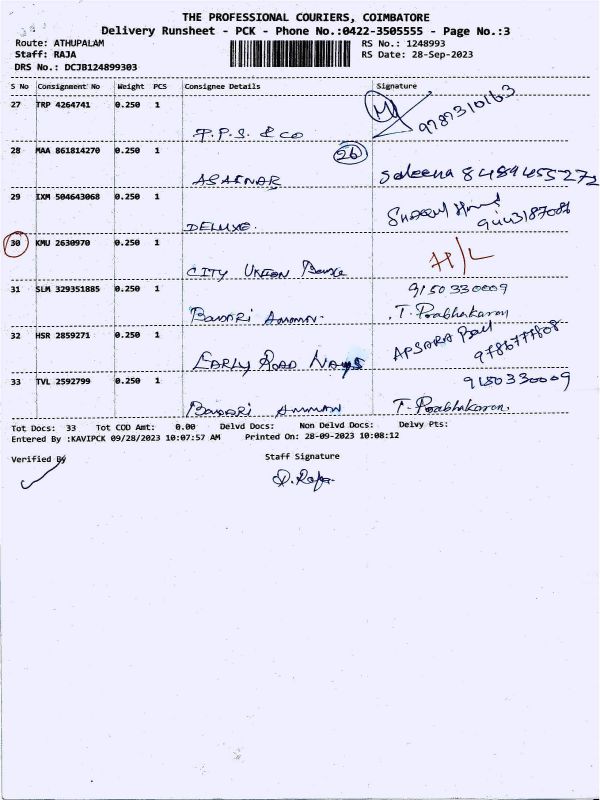 THE PROFESSIONAL COURIERS, COIMBATORE
Delivery Runsheet - PCK - Phone No.:0422-3505555 - Page No.:3
Route: ATHUPALAM RS No.: 1248993
Staff: RAJA RS Date: 28-Sep-2023
DRS No.: DCJB124899303
S No Consignment No Weight PCS Consignee Details Signature
27 TRP 4264741 0.250 1
P.P.S. & CO
28 MAA 861814270 0.250 1 26
Saleena 8489455272
29 IXM 504643068 0.250 1
DELUXE. 9443187086
30 KMU 2630970 0.250 1 H/L
CITY UNION Bank
31 SLM 329351885 0.250 1 9150330009
BANARI AMMAN. T. Prabhakaran
32 HSR 2859271 0.250 1 APSARA
EARLY ROAD WAYS
33 TVL 2592799 0.250 1 9150330009
BANARI AMMAN T. Prabhakaran.
Tot Docs: 33 Tot COD Amt: 0.00 Delvd Docs: Non Delvd Docs: Delvy Pts:
Entered By :KAVIPCK 09/28/2023 10:07:57 AM Printed On: 28-09-2023 10:08:12
Verified By Staff Signature